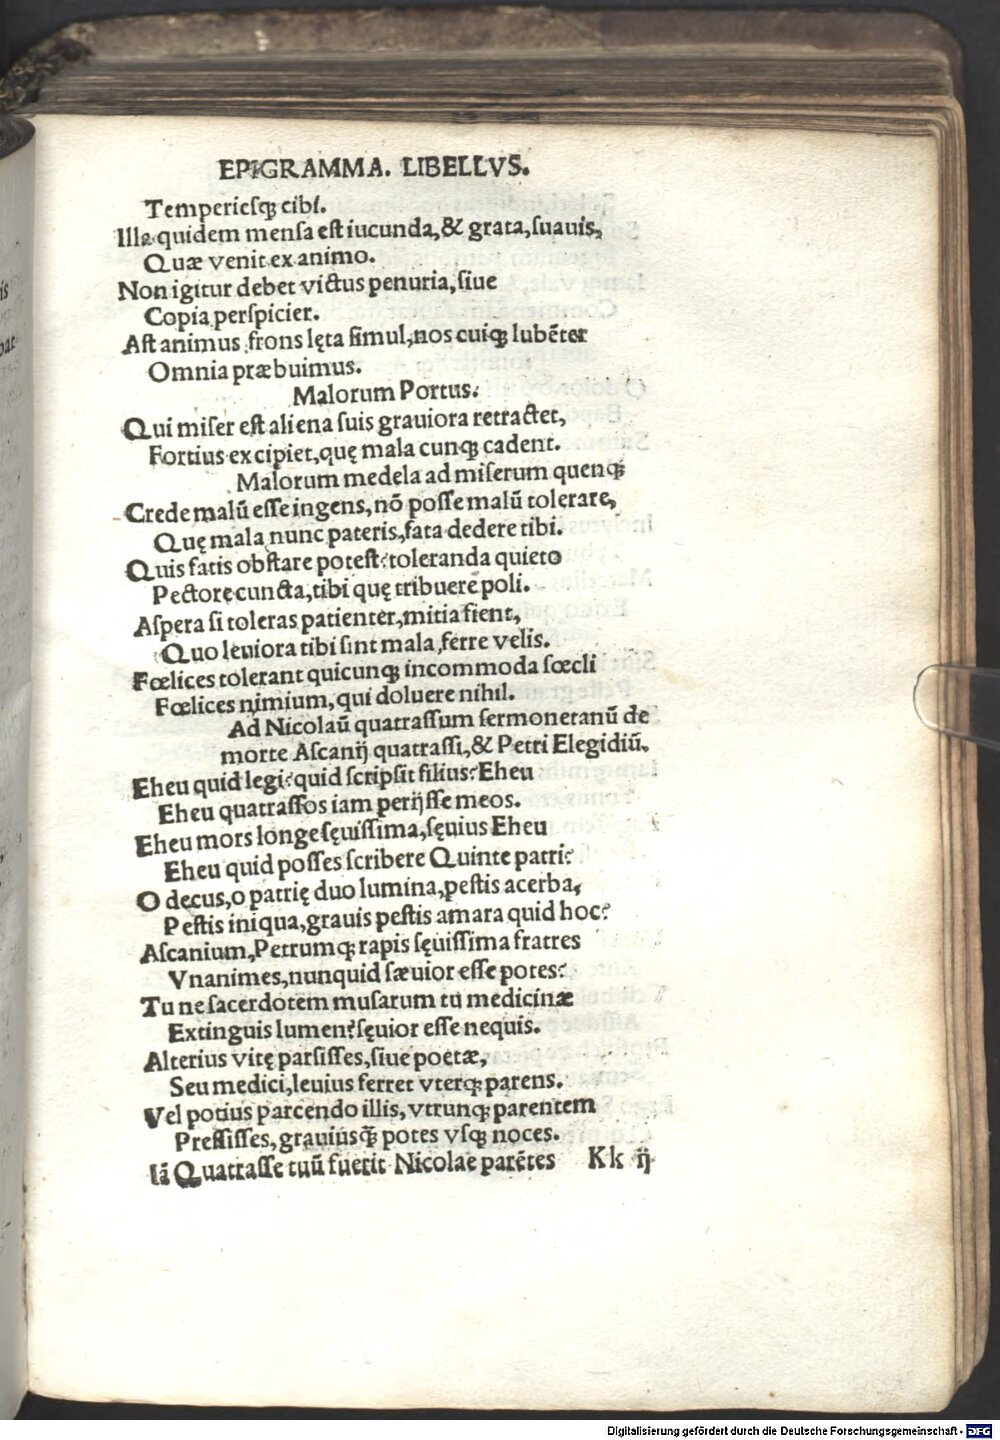 EPIGRAMMA. LIBELLVS.
Temperiesqꝫ cibi.
Illa quidem mensa est iucunda, & grata, suauis,
Quæ venit ex animo.
Non igitur debet victus penuria, siue
Copia perspicier.
Ast animus, frons lęta simul, nos cuiqꝫ lubẽter
Omnia præbuimus.
Malorum Portus.
Qui miser est aliena suis grauiora retractet,
Fortius excipiet, quę mala cunqꝫ cadent.
Malorum medela ad miserum quenqꝫ
Crede malũ esse ingens, nõ posse malũ tolerare,
Quę mala nunc pateris, fata dedere tibi.
Quis fatis obstare potest? toleranda quieto
Pectore cuncta, tibi quę tribuere poli.
Aspera si toleras patienter, mitia fient,
Quo leuiora tibi sint mala, ferre velis.
Fœlices tolerant quicunqꝫ incommoda sœcli
Fœlices nimium, qui doluere nihil.
Ad Nicolaũ quatrassum sermonetanũ de
morte Ascanij quatrassi, & Petri Elegidiũ.
Eheu quid legi? quid scripsit filius? Eheu
Eheu quatrassos iam perijsse meos.
Eheu mors longe sęuissima, sęuius Eheu
Eheu quid posses scribere Quinte patri?
O decus, o patrię duo lumina, pestis acerba,
Pestis iniqua, grauis pestis amara quid hoc?
Ascanium, Petrumqꝫ rapis sęuissima fratres
Vnanimes, nunquid sæuior esse potes?
Tu ne sacerdotem musarum tu medicinæ
Extinguis lumen? sęuior esse nequis.
Alterius vitę parsisses, siue poetæ,
Seu medici, leuius ferret vterqꝫ parens.
Vel potius parcendo illis, vtrunqꝫ parentem
Pressisses, grauiusq̃ potes vsqꝫ noces.
Iã Quatrasse tuũ fuerit Nicolae parẽtes Kk ij
is
bat
Digitalisierung gefördert durch die Deutsche Forschungsgemeinschaft - DFG